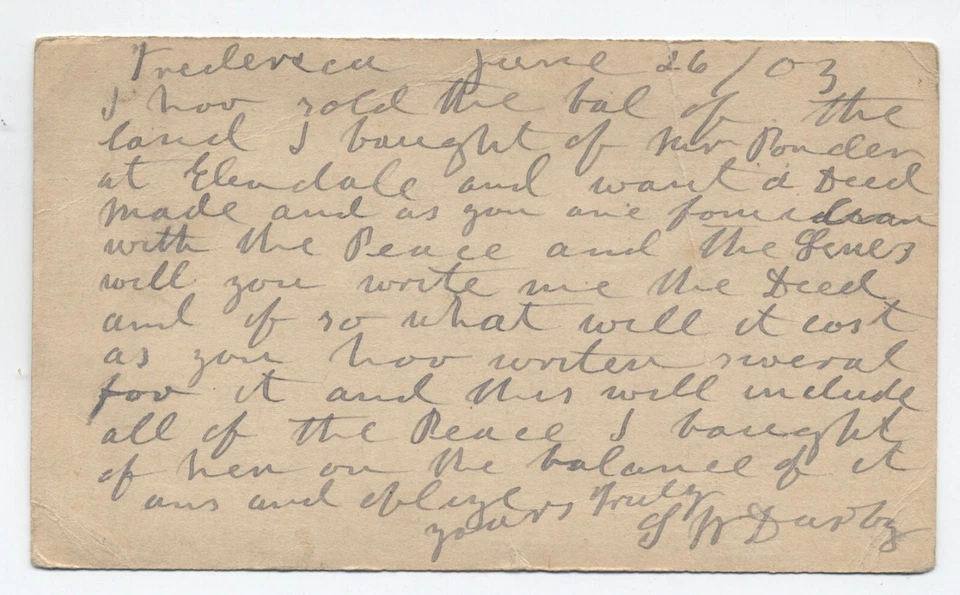 Frederica June 26/03
I hav sold the bal of the
land I baught of Mr Ponder
at Elendale and want a Deed
made and as you are
with the Peace and the Lines
will you write me the Deed
and if so what will it cost
as you hav writen sweral
for it and this will include
all of the Peace I baught
of her or the balance of it
ans and oblige
yours Truly S W Darby